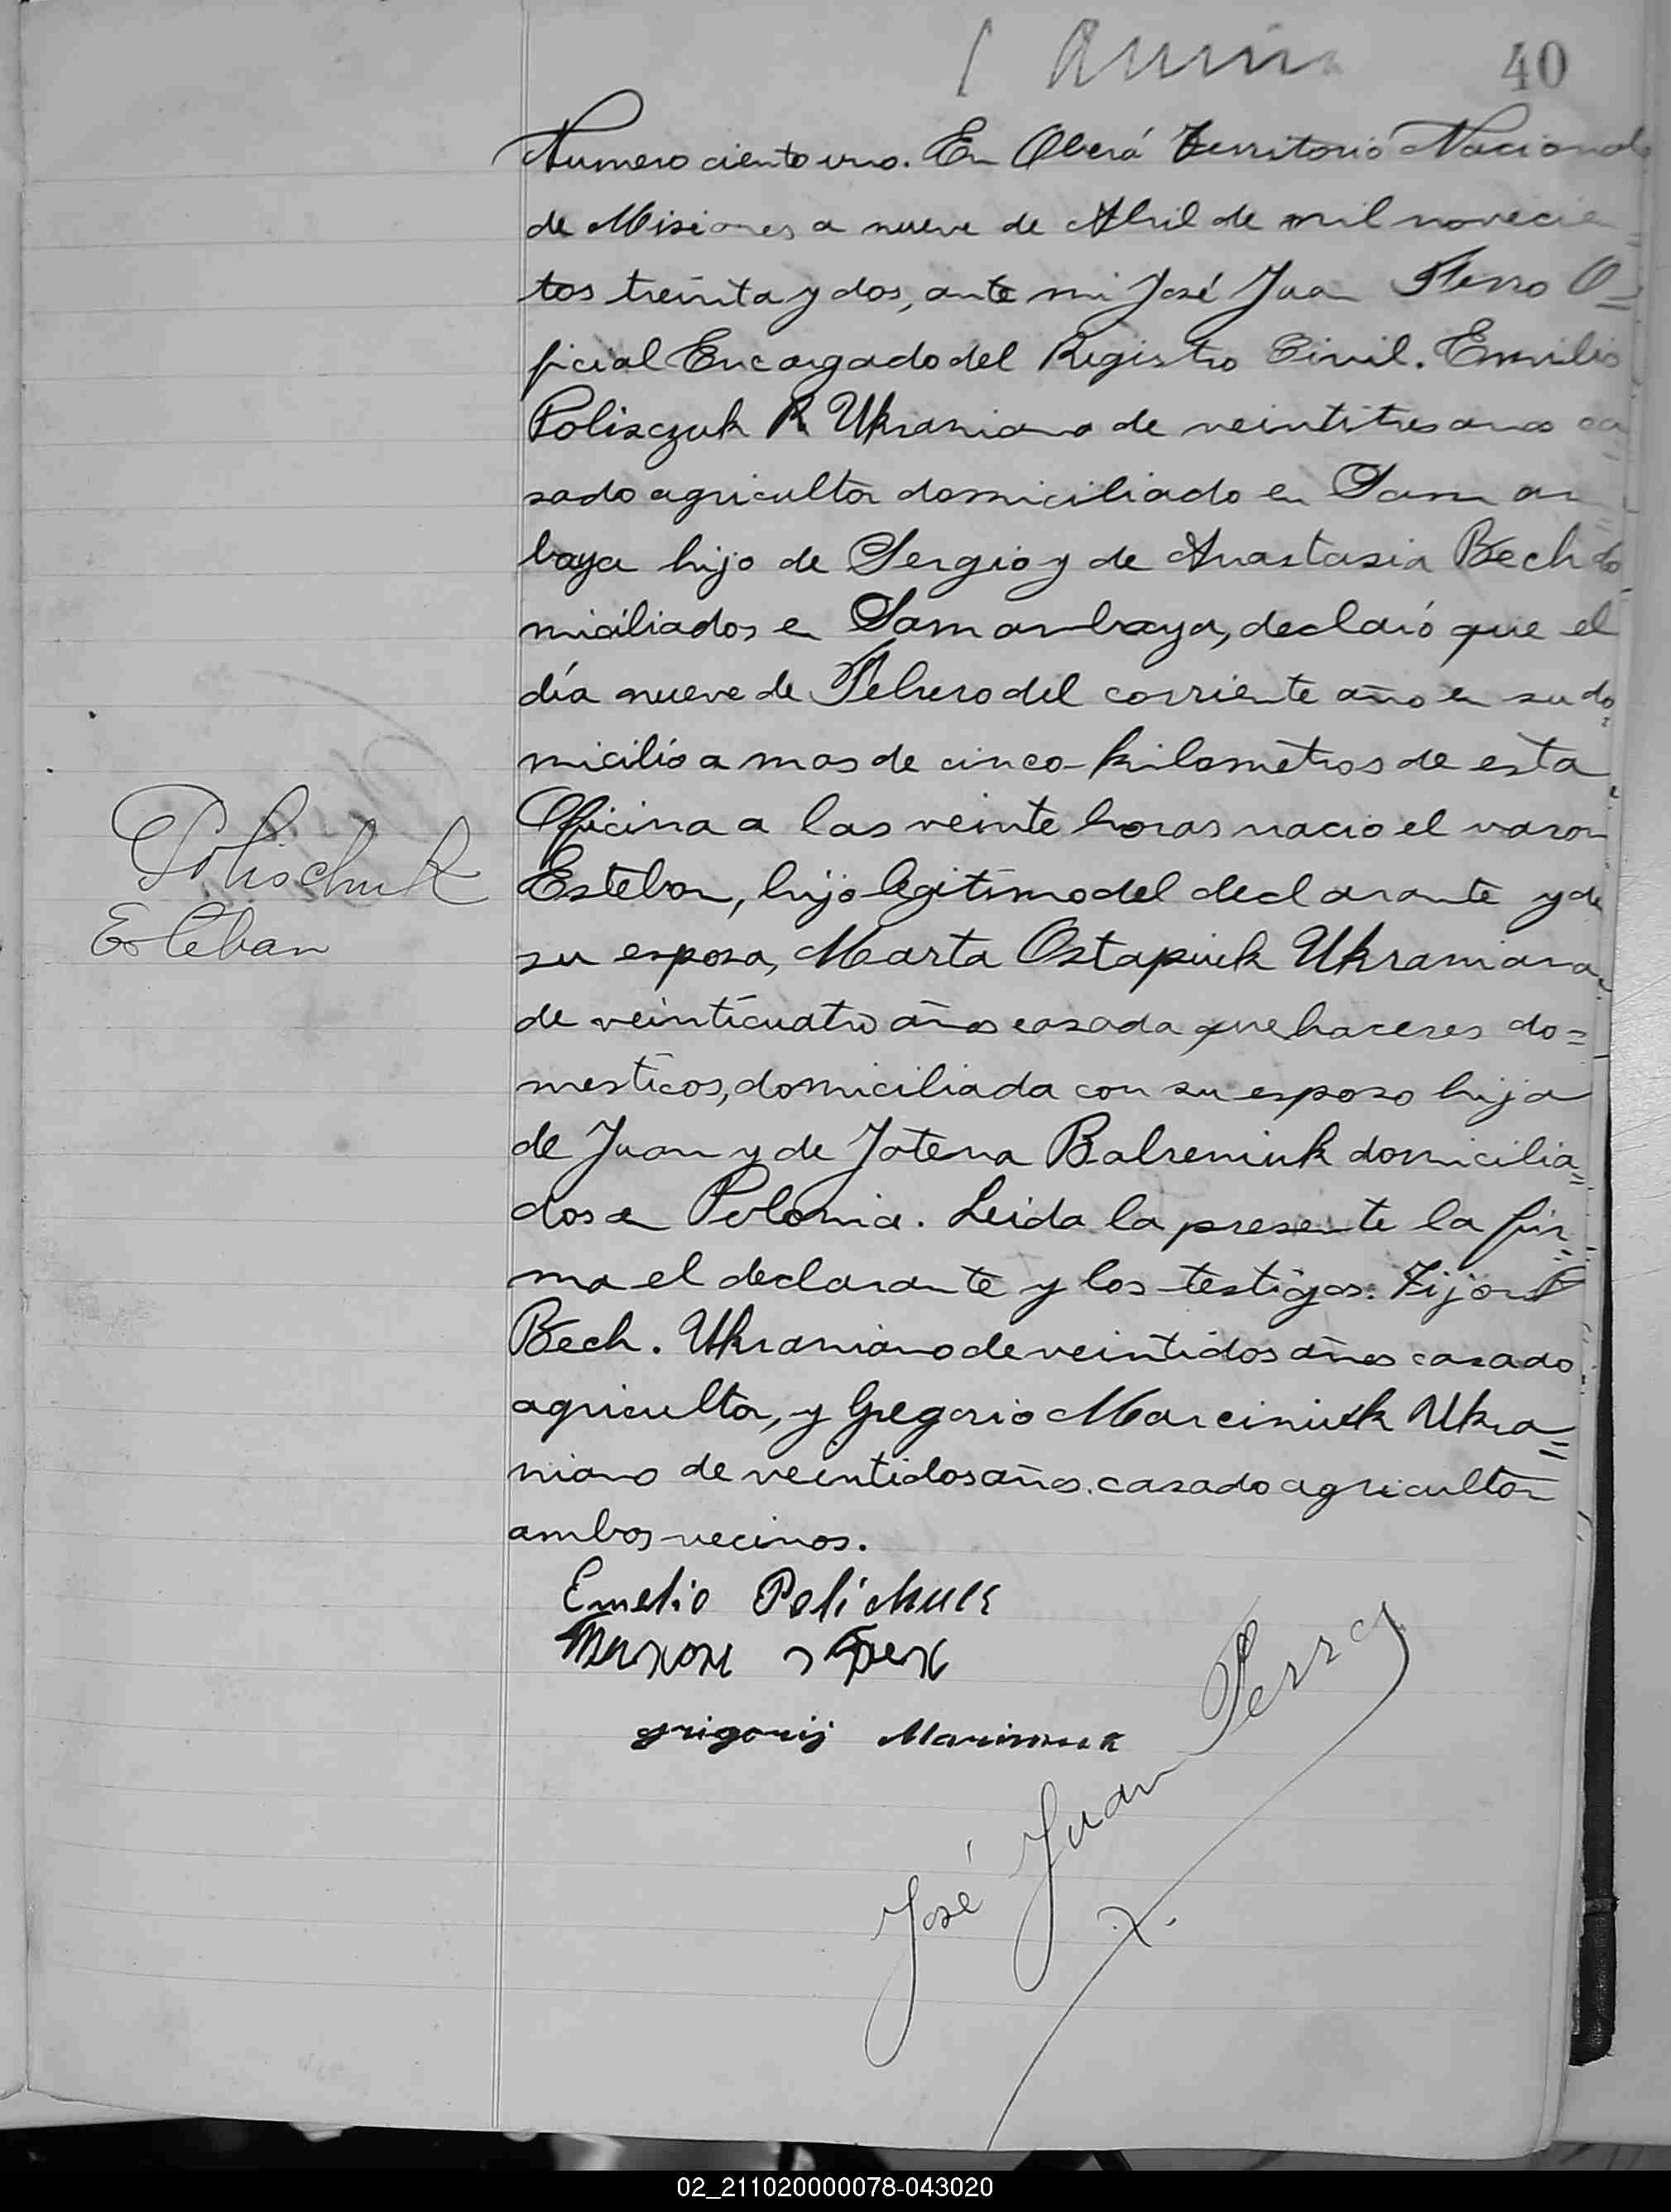 40
Numero ciento uno. En Oberá Territorio Nacional
de Misiones a nueve de Abril de mil novecien=
tos treinta y dos, ante mi José Juan Ferro O=
ficial Encargado del Registro Civil. Emilio
Polisczuk Ukraniano de veintitres anos ca=
sado agricultor domiciliado en Samam=
baya hijo de Sergio y de Anastasia Bech do=
miciliados en Samambaya, declaró que el
día nueve de Febrero del corriente año en su do=
micilio a mas de cinco kilometros de esta
Oficina a las veinte horas nacio el varon
Esteban, hijo legitimo del declarante y de
su esposa, Marta Ostapiuk Ukraniana,
de veinticuatro años casada quehaceres do=
mesticos, domiciliada con su esposo hija
de Juan y de Jotena domicilia=
dos en Polonia. Leida la presente la fir=
ma el declarante y los testigos. Tijon
Bech. Ukraniano de veintidos años casado
agricultor, y Gregorio Marciniuk Ukra=
niano de veintidos años casado agricultor
ambos vecinos.
Polischuk
Esteban
Emelio Polichuck
Grigorij
José Juan Ferro
02_211020000078-043020